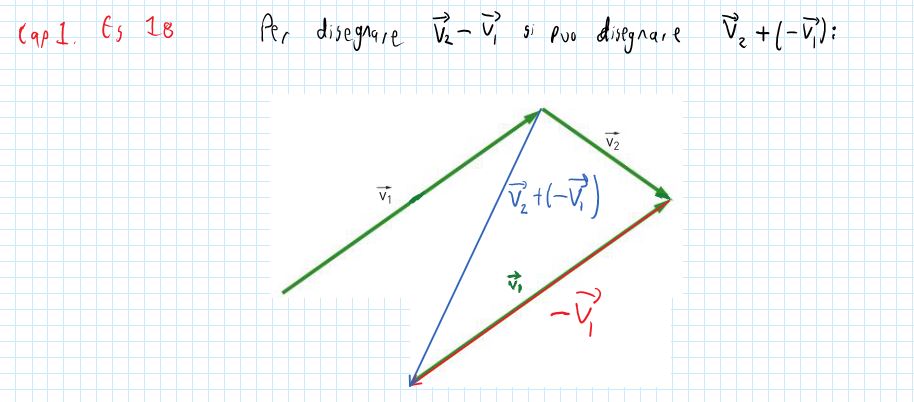 Cap 1. Es 18 Per disegnare V⃗₂ - V⃗₁ si puo disegnare V⃗₂ + (-V⃗₁):
v⃗₂
v⃗₁
V⃗₂ + (-V⃗₁)
v⃗₁
-V⃗₁